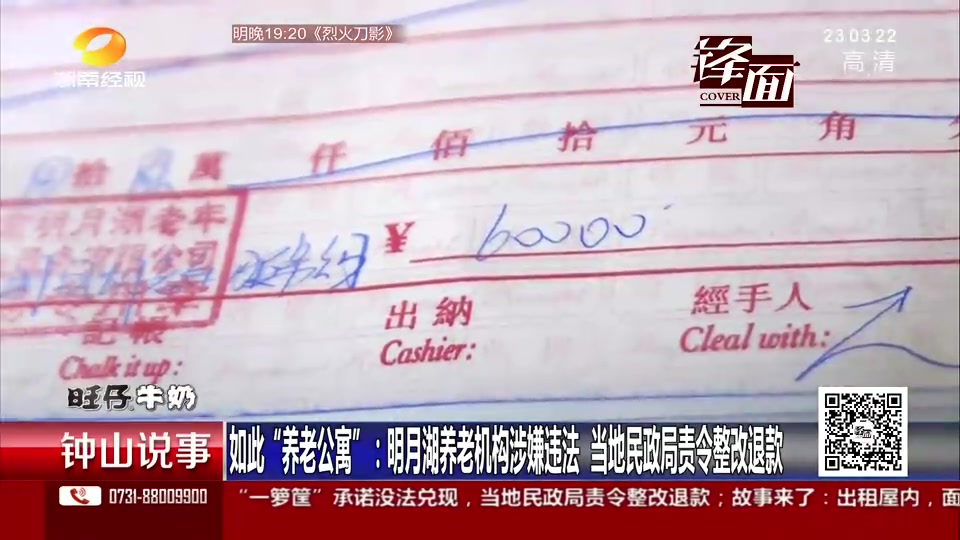 明晚19:20《烈火刀影》
23 03 22
高清
湖南经视
锋面
COVER
拾 萬 仟 佰 拾 元 角
明月湖老年
公司
¥ 60000
出納
Cashier:
經手人
Cleal with:
記帳
Chalk it up:
旺仔牛奶
钟山说事
如此“养老公寓”：明月湖养老机构涉嫌违法 当地民政局责令整改退款
0731-88009900
“一箩筐”承诺没法兑现，当地民政局责令整改退款；故事来了：出租屋内，面